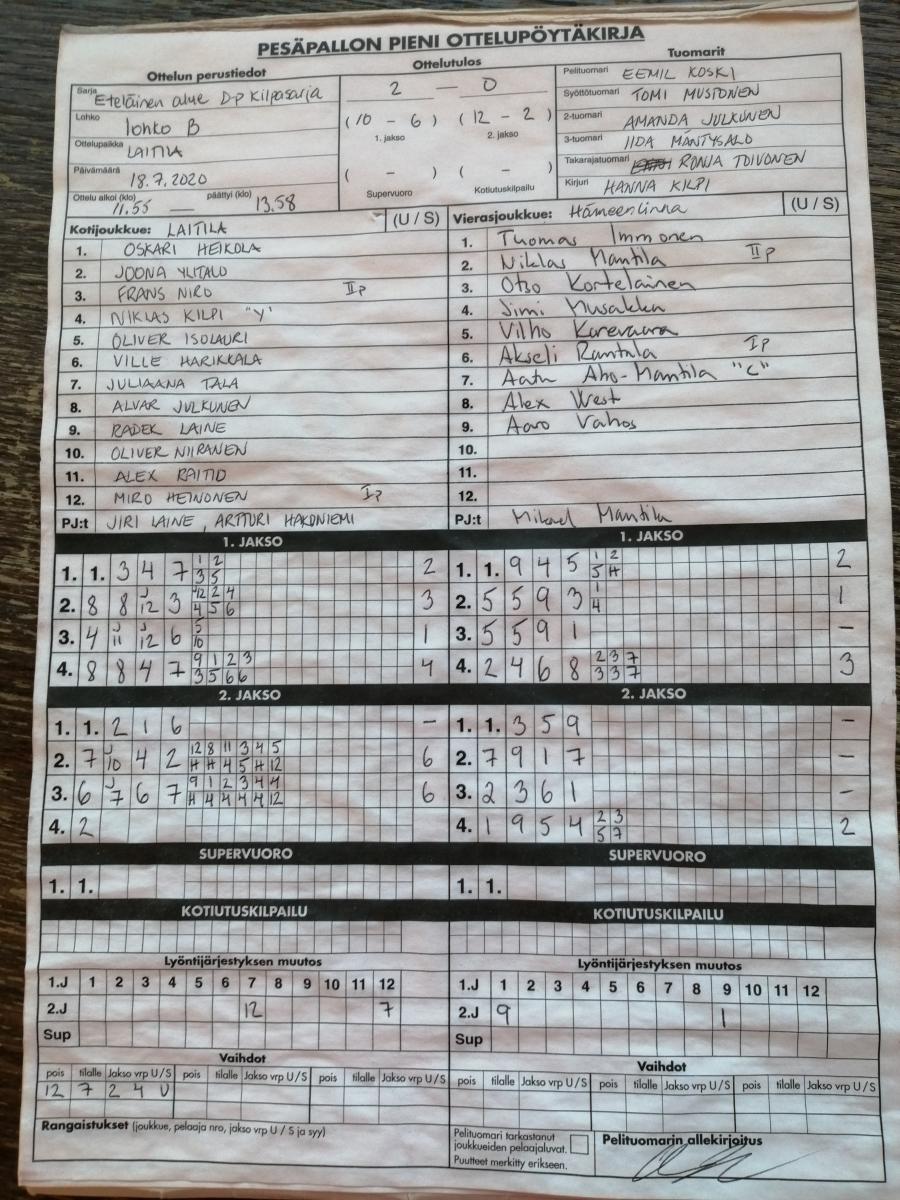 PESÄPALLON PIENI OTTELUPÖYTÄKIRJA
Ottelun perustiedot
Sarja Eteläinen alue D-p kilpasarja
Lohko lohko B
Ottelupaikka LAITILA
Päivämäärä 18.7.2020
Ottelu alkoi (klo) 11.55 — päättyi (klo) 13.58
Ottelutulos
2 — 0
(10 - 6) (12 - 2)
1. jakso 2. jakso
( - ) ( - )
Supervuoro Kotiutuskilpailu
Tuomarit
Pelituomari EEMIL KOSKI
Syöttötuomari TOMI MUSTONEN
2-tuomari AMANDA JULKUNEN
3-tuomari IIDA MÄNTYSALO
Takarajatuomari RONJA TOIVONEN
Kirjuri HANNA KILPI
Kotijoukkue: LAITILA (U / S)
1. OSKARI HEIKOLA
2. JOONA YLITALO
3. FRANS NIRO IIp
4. NIKLAS KILPI "Y"
5. OLIVER ISOLAURI
6. VILLE HARIKKALA
7. JULIAANA TALA
8. ALVAR JULKUNEN
9. RADEK LAINE
10. OLIVER NIIRANEN
11. ALEX RAITIO
12. MIRO HEINONEN Ip
PJ:t JIRI LAINE, ARTTURI HAKONIEMI
Vierasjoukkue: Hämeenlinna (U / S)
1. Tuomas Immonen
2. Niklas Mantila IIp
3. Otso Kortelainen
4. Jimi Musakka
5. Vilho Karevaara
6. Akseli Rantala Ip
7. Aatu Aho-Mantila "C"
8. Alex West
9. Aaro Vahos
10.
11.
12.
PJ:t Mikael Mantila
1. JAKSO
1. 1. 3 4 7 1 2 2
3 5
2. 8 8 J 12 3 J12 2 4 3
4 5 6
3. 4 J 11 J 12 6 5 1
10
4. 8 8 4 7 9 1 2 3 4
3 5 6 6
1. JAKSO
1. 1. 9 4 5 1 2 2
5 H
2. 5 5 9 3 1 1
4
3. 5 5 9 1 –
4. 2 4 6 8 2 3 7 3
3 3 7
2. JAKSO
1. 1. 2 1 6 –
2. 7 J 10 4 2 12 8 11 3 4 5 6
H H 4 5 H 12
3. 6 J 7 6 7 9 1 2 3 4 4 6
H 4 4 4 4 12
4. 2
2. JAKSO
1. 1. 3 5 9 –
2. 7 9 1 7 –
3. 2 3 6 1 –
4. 1 9 5 4 2 3 2
5 7
SUPERVUORO
1. 1.
SUPERVUORO
1. 1.
KOTIUTUSKILPAILU
KOTIUTUSKILPAILU
Lyöntijärjestyksen muutos
1.J 1 2 3 4 5 6 7 8 9 10 11 12
2.J 12 7
Sup
Lyöntijärjestyksen muutos
1.J 1 2 3 4 5 6 7 8 9 10 11 12
2.J 9 1
Sup
Vaihdot
pois tilalle Jakso vrp U/S pois tilalle Jakso vrp U/S pois tilalle Jakso vrp U/S
12 7 2 4 U
Vaihdot
pois tilalle Jakso vrp U/S pois tilalle Jakso vrp U/S pois tilalle Jakso vrp U/S
Rangaistukset (joukkue, pelaaja nro, jakso vrp U / S ja syy)
Pelituomari tarkastanut
joukkueiden pelaajaluvat.
Puutteet merkitty erikseen.
Pelituomarin allekirjoitus